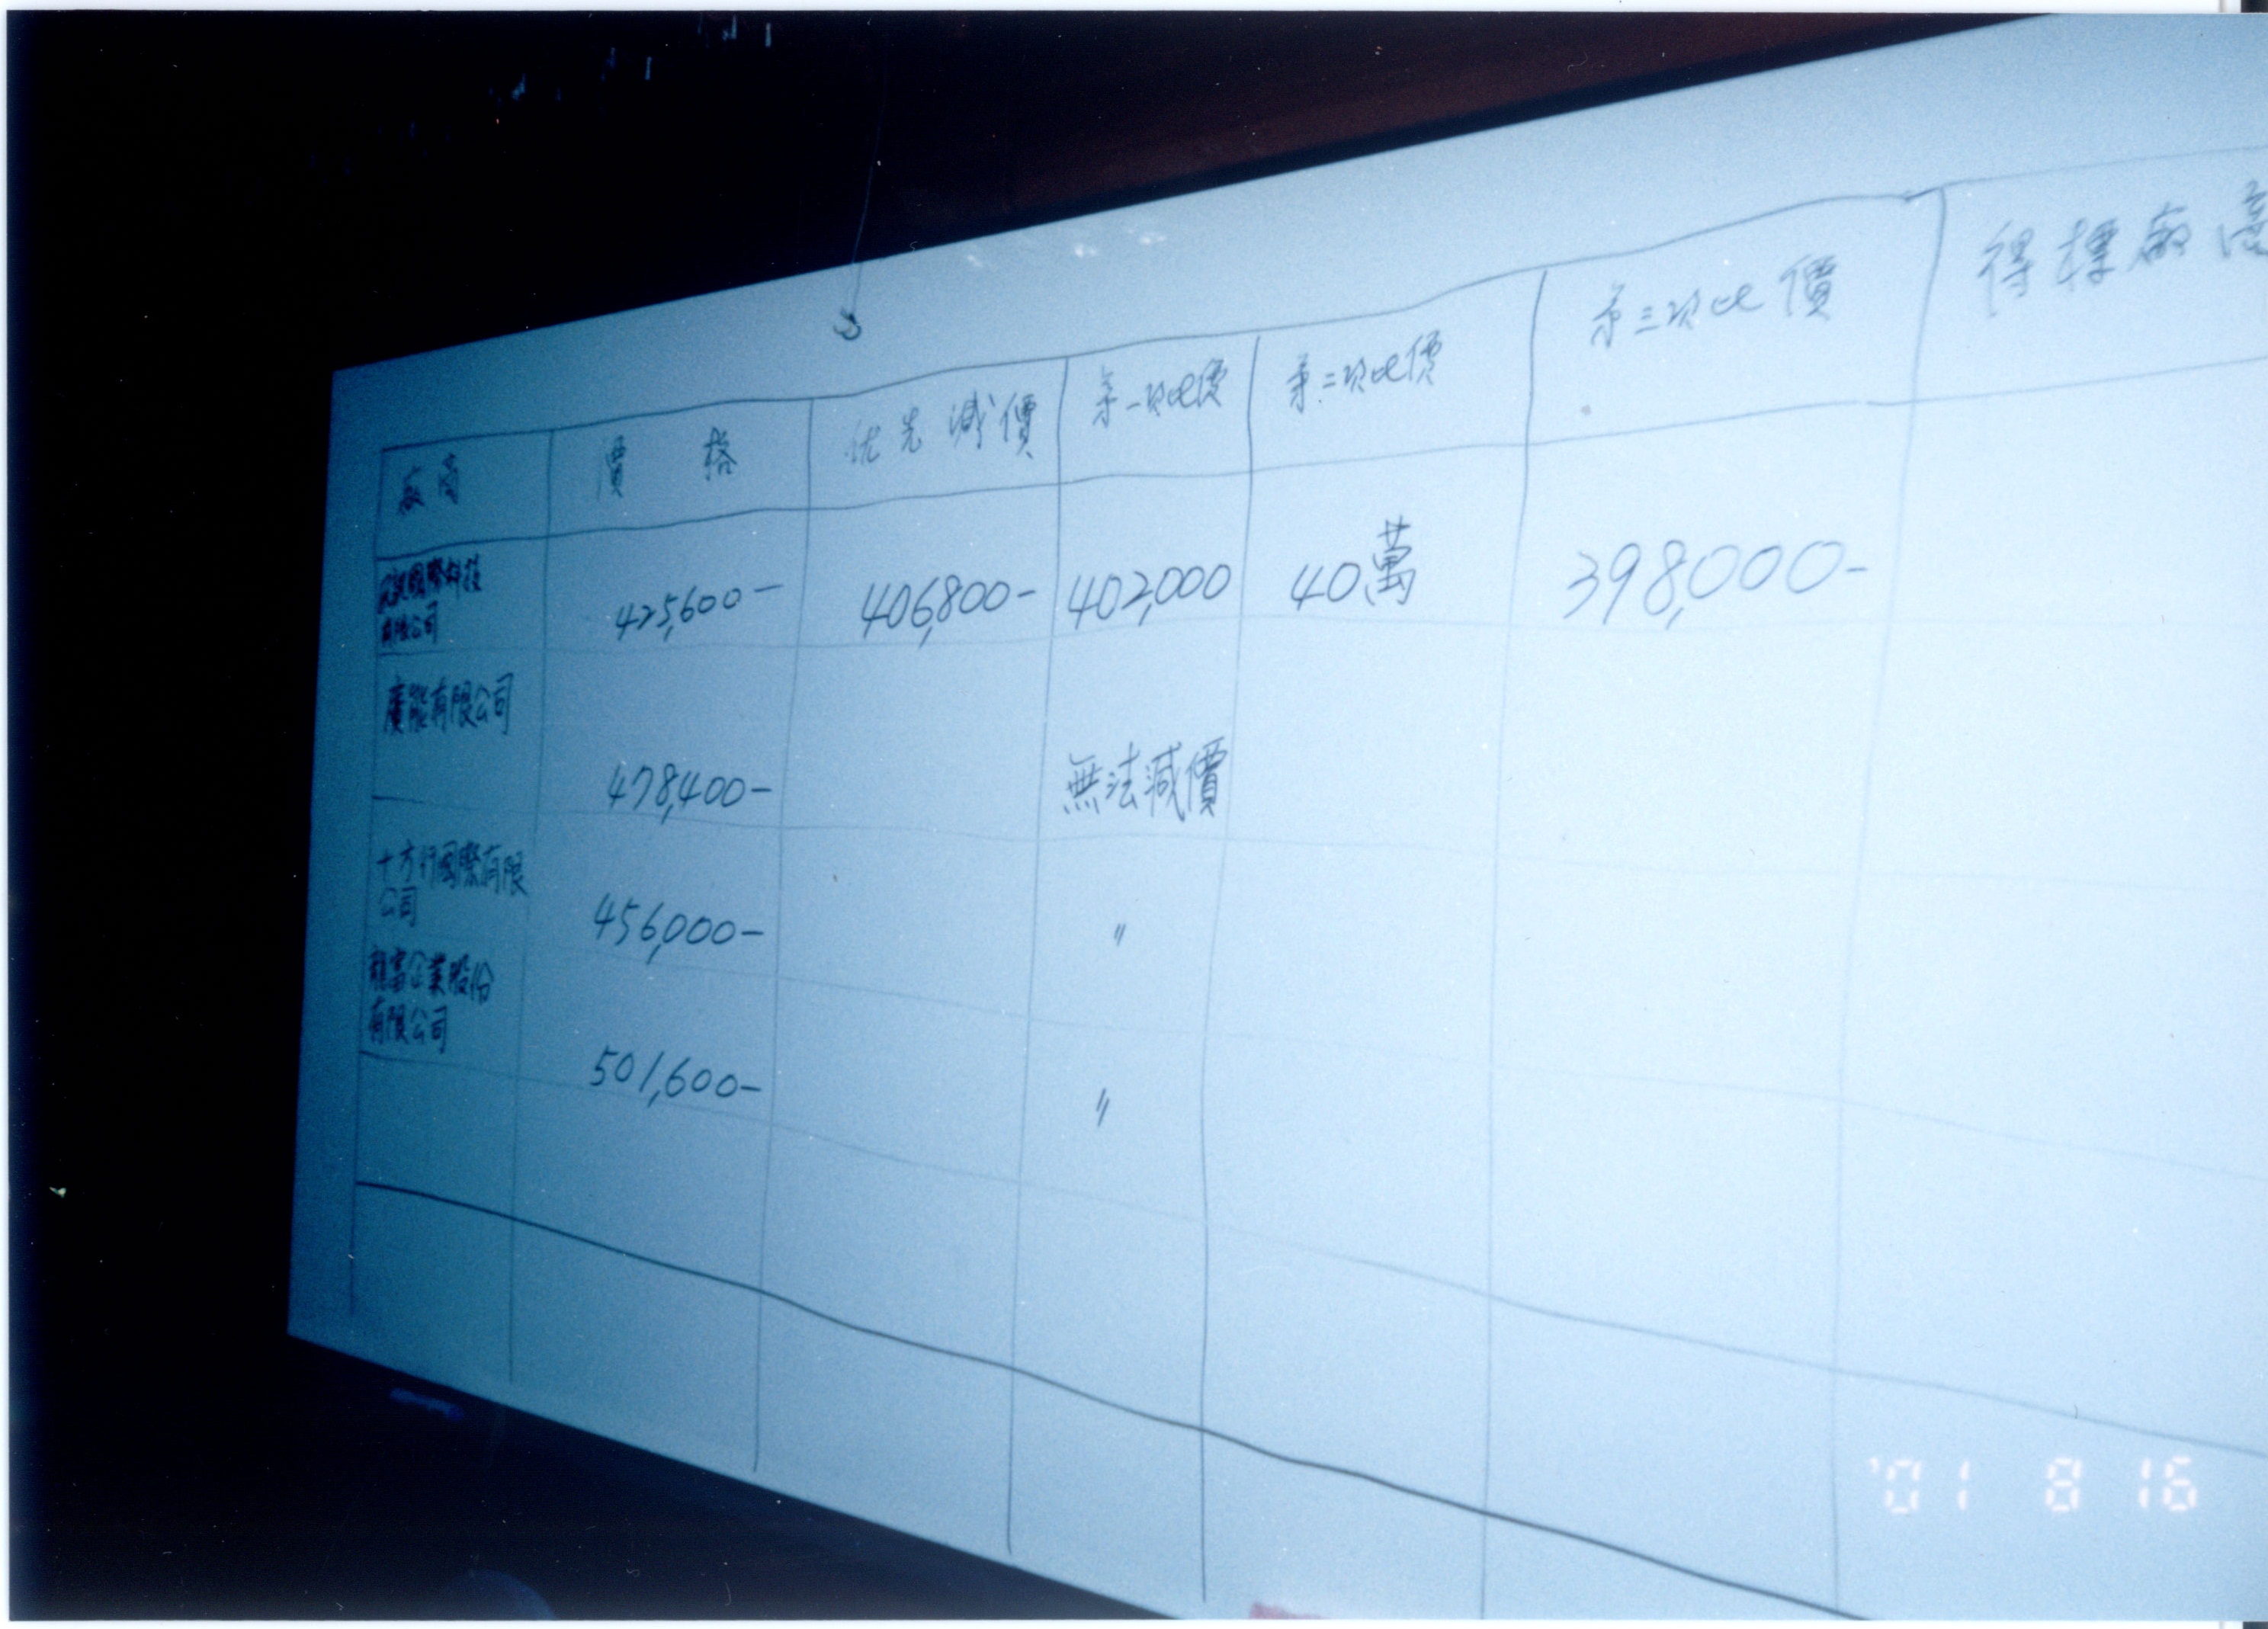 廠商 價格 优先減價 第一次比價 第二次比價 第三次比價 得標廠商
國際科技
有限公司
425,600- 406,800- 402,000 40萬 398,000-
廣能有限公司
478,400- 無法減價
十方行國際有限
公司
456,000- 〃
龍富企業股份
有限公司
501,600- 〃
'01 8 16